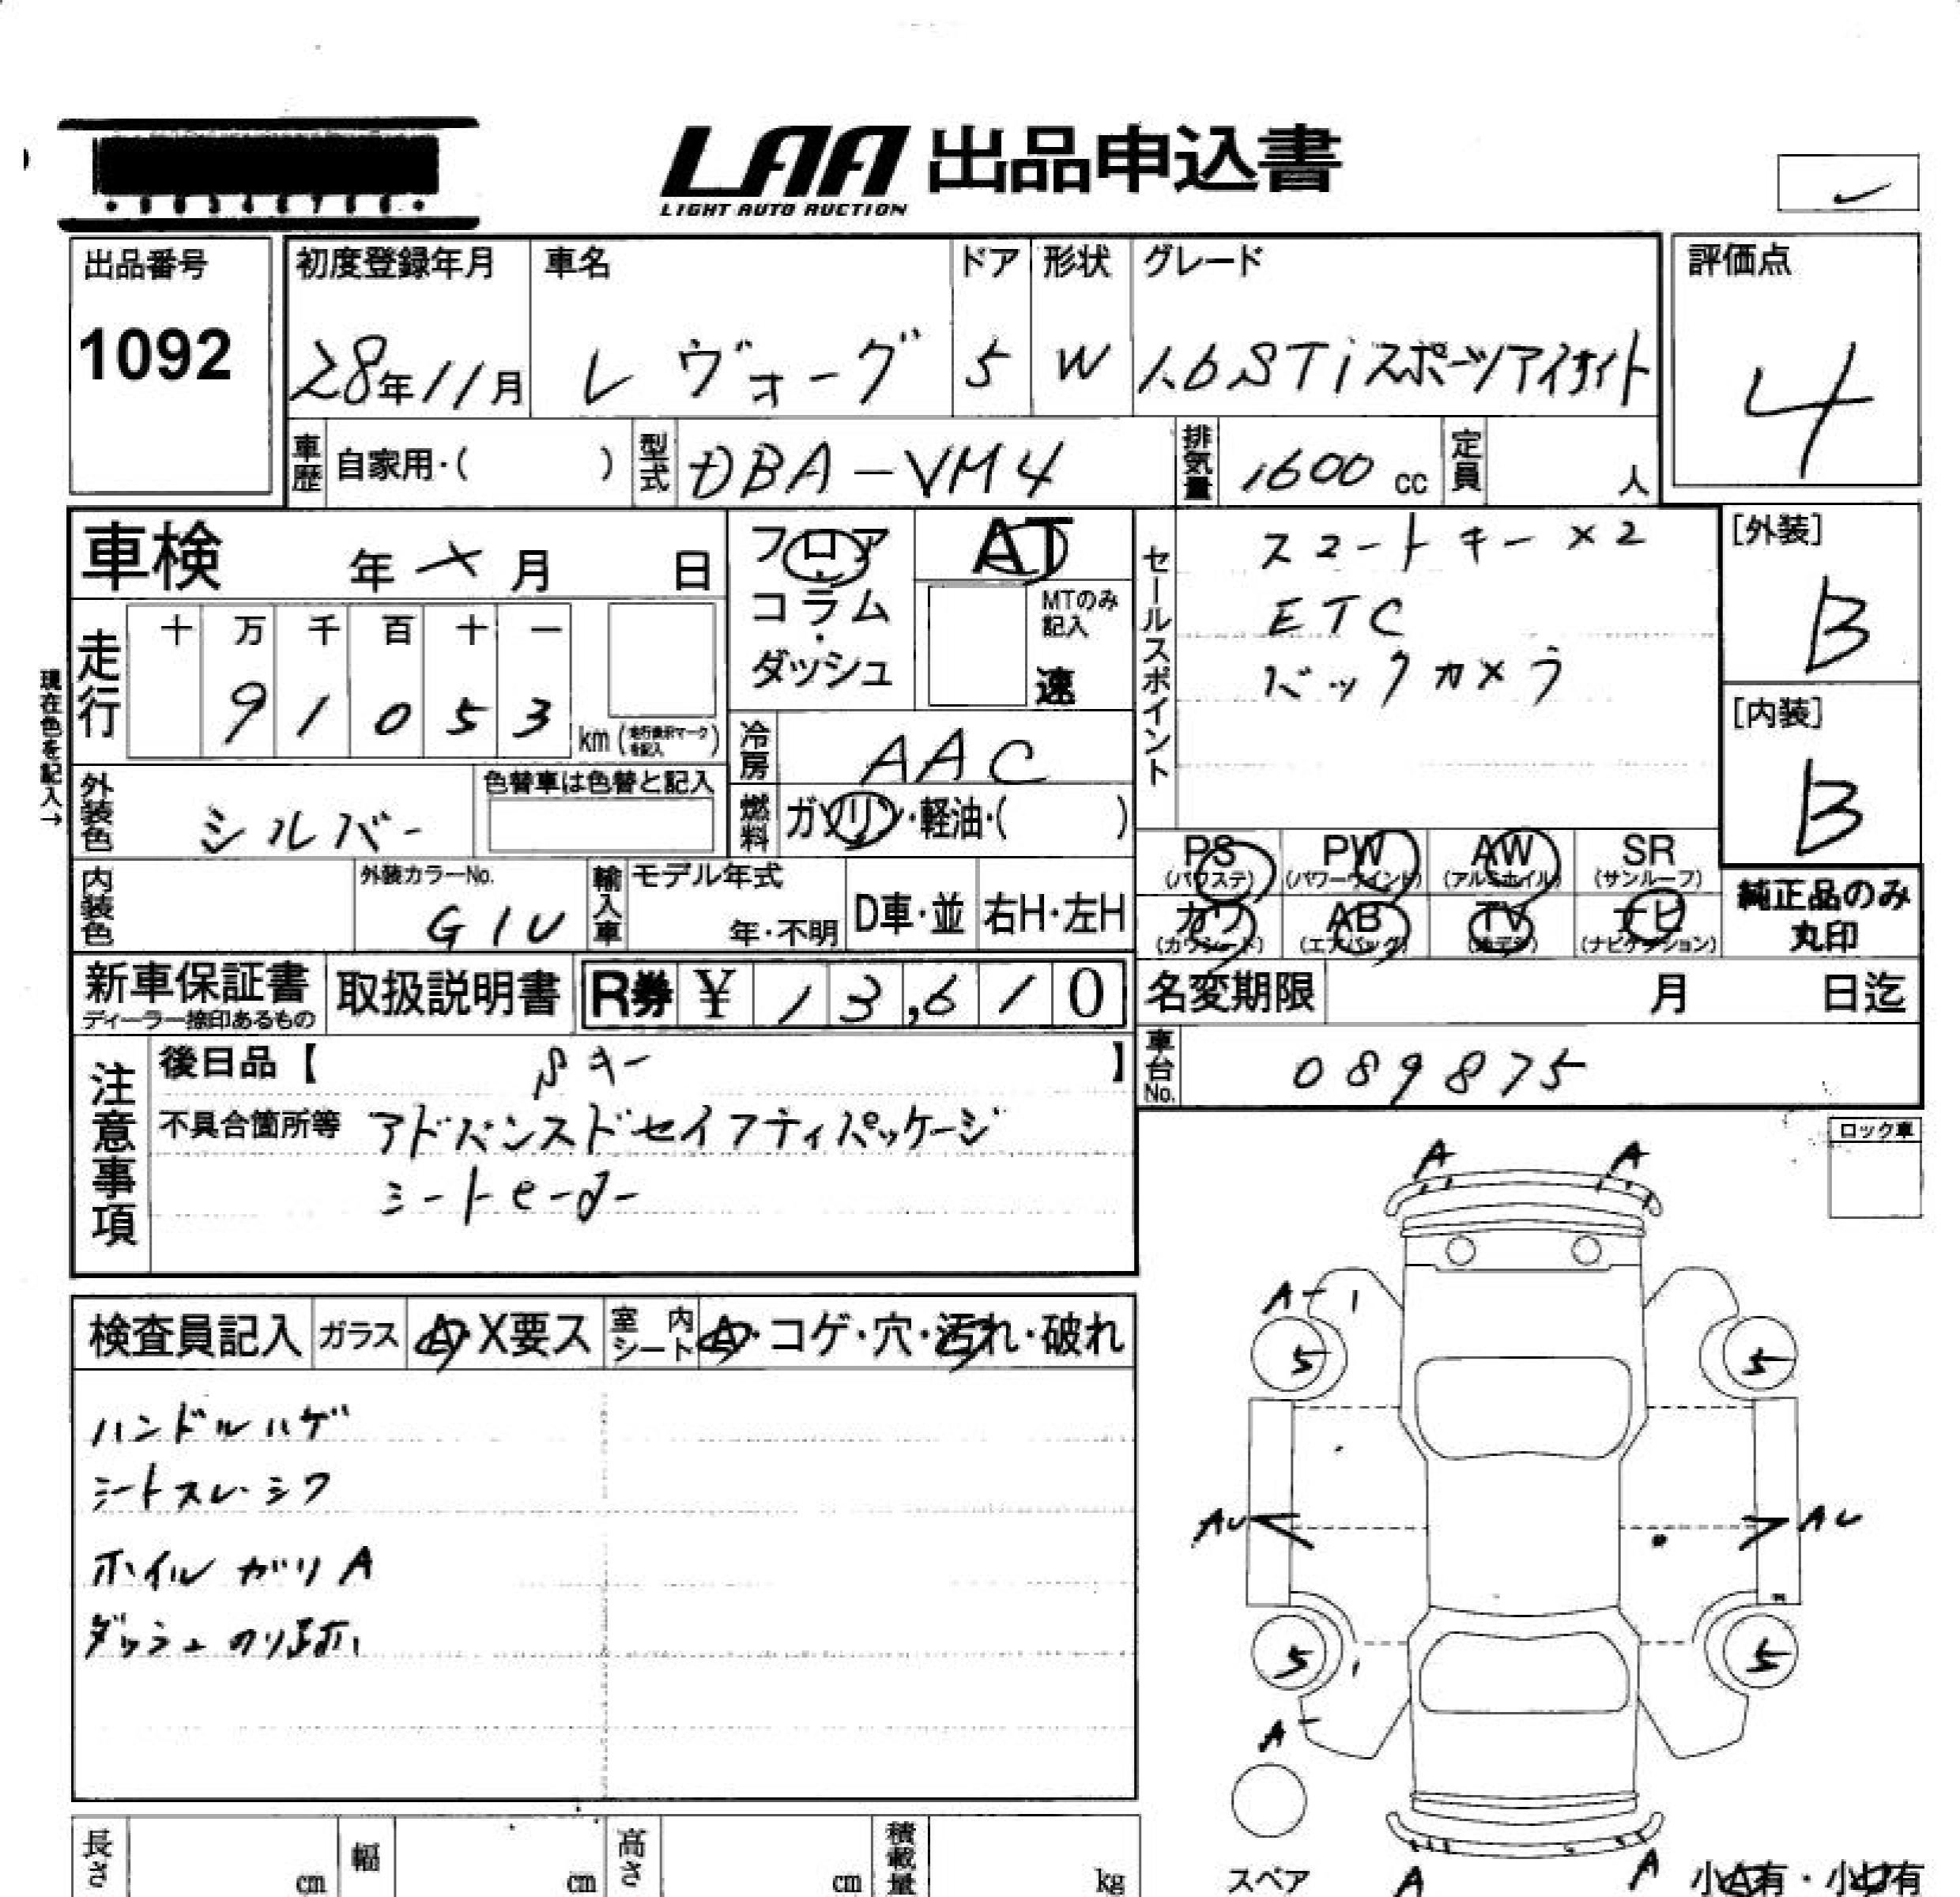 LAA 出品申込書
LIGHT AUTO AUCTION
出品番号
1092
初度登録年月 車名 ドア 形状 グレード 評価点
28年11月 レヴォーグ 5 W 1.6STiスポーツアイサイト 4
車歴 自家用・( ) 型式 DBA-VM4 排気量 1600 cc 定員 人
車検 年 月 日
フロア・コラム・ダッシュ
AT
MTのみ記入
速
セールスポイント
スマートキー×2
ETC
バックカメラ
[外装]
B
[内装]
B
現在色を記入→
走行 十 万 千 百 十 一
91053 km (走行表示マークを記入)
冷房 AAC
外装色 シルバー 色替車は色替と記入
燃料 ガソリン・軽油・( )
PS (パワステ) PW (パワーウインド) AW (アルミホイル) SR (サンルーフ)
カワ (カワシート) AB (エアバッグ) TV (地デジ) ナビ (ナビゲーション)
純正品のみ丸印
内装色 外装カラーNo. G1U 輸入車 モデル年式 年・不明 D車・並 右H・左H
新車保証書 ディーラー捺印あるもの 取扱説明書 R券 ¥ 13,610
名変期限 月 日迄
車台No. 089875
注意事項
後日品【 Sキー 】
不具合箇所等 アドバンスドセイフティパッケージ
シートヒーター
ロック車
検査員記入 ガラス A・X要ス 室内シート A・コゲ・穴・汚れ・破れ
ハンドルハゲ
シートスレ・シワ
ホイルガリA
ダッシュのり跡
A A
A-1
5 5
AU AU
5 5
A-
A A
スペア
小A有・小U有
長さ cm 幅 cm 高さ cm 積載量 kg